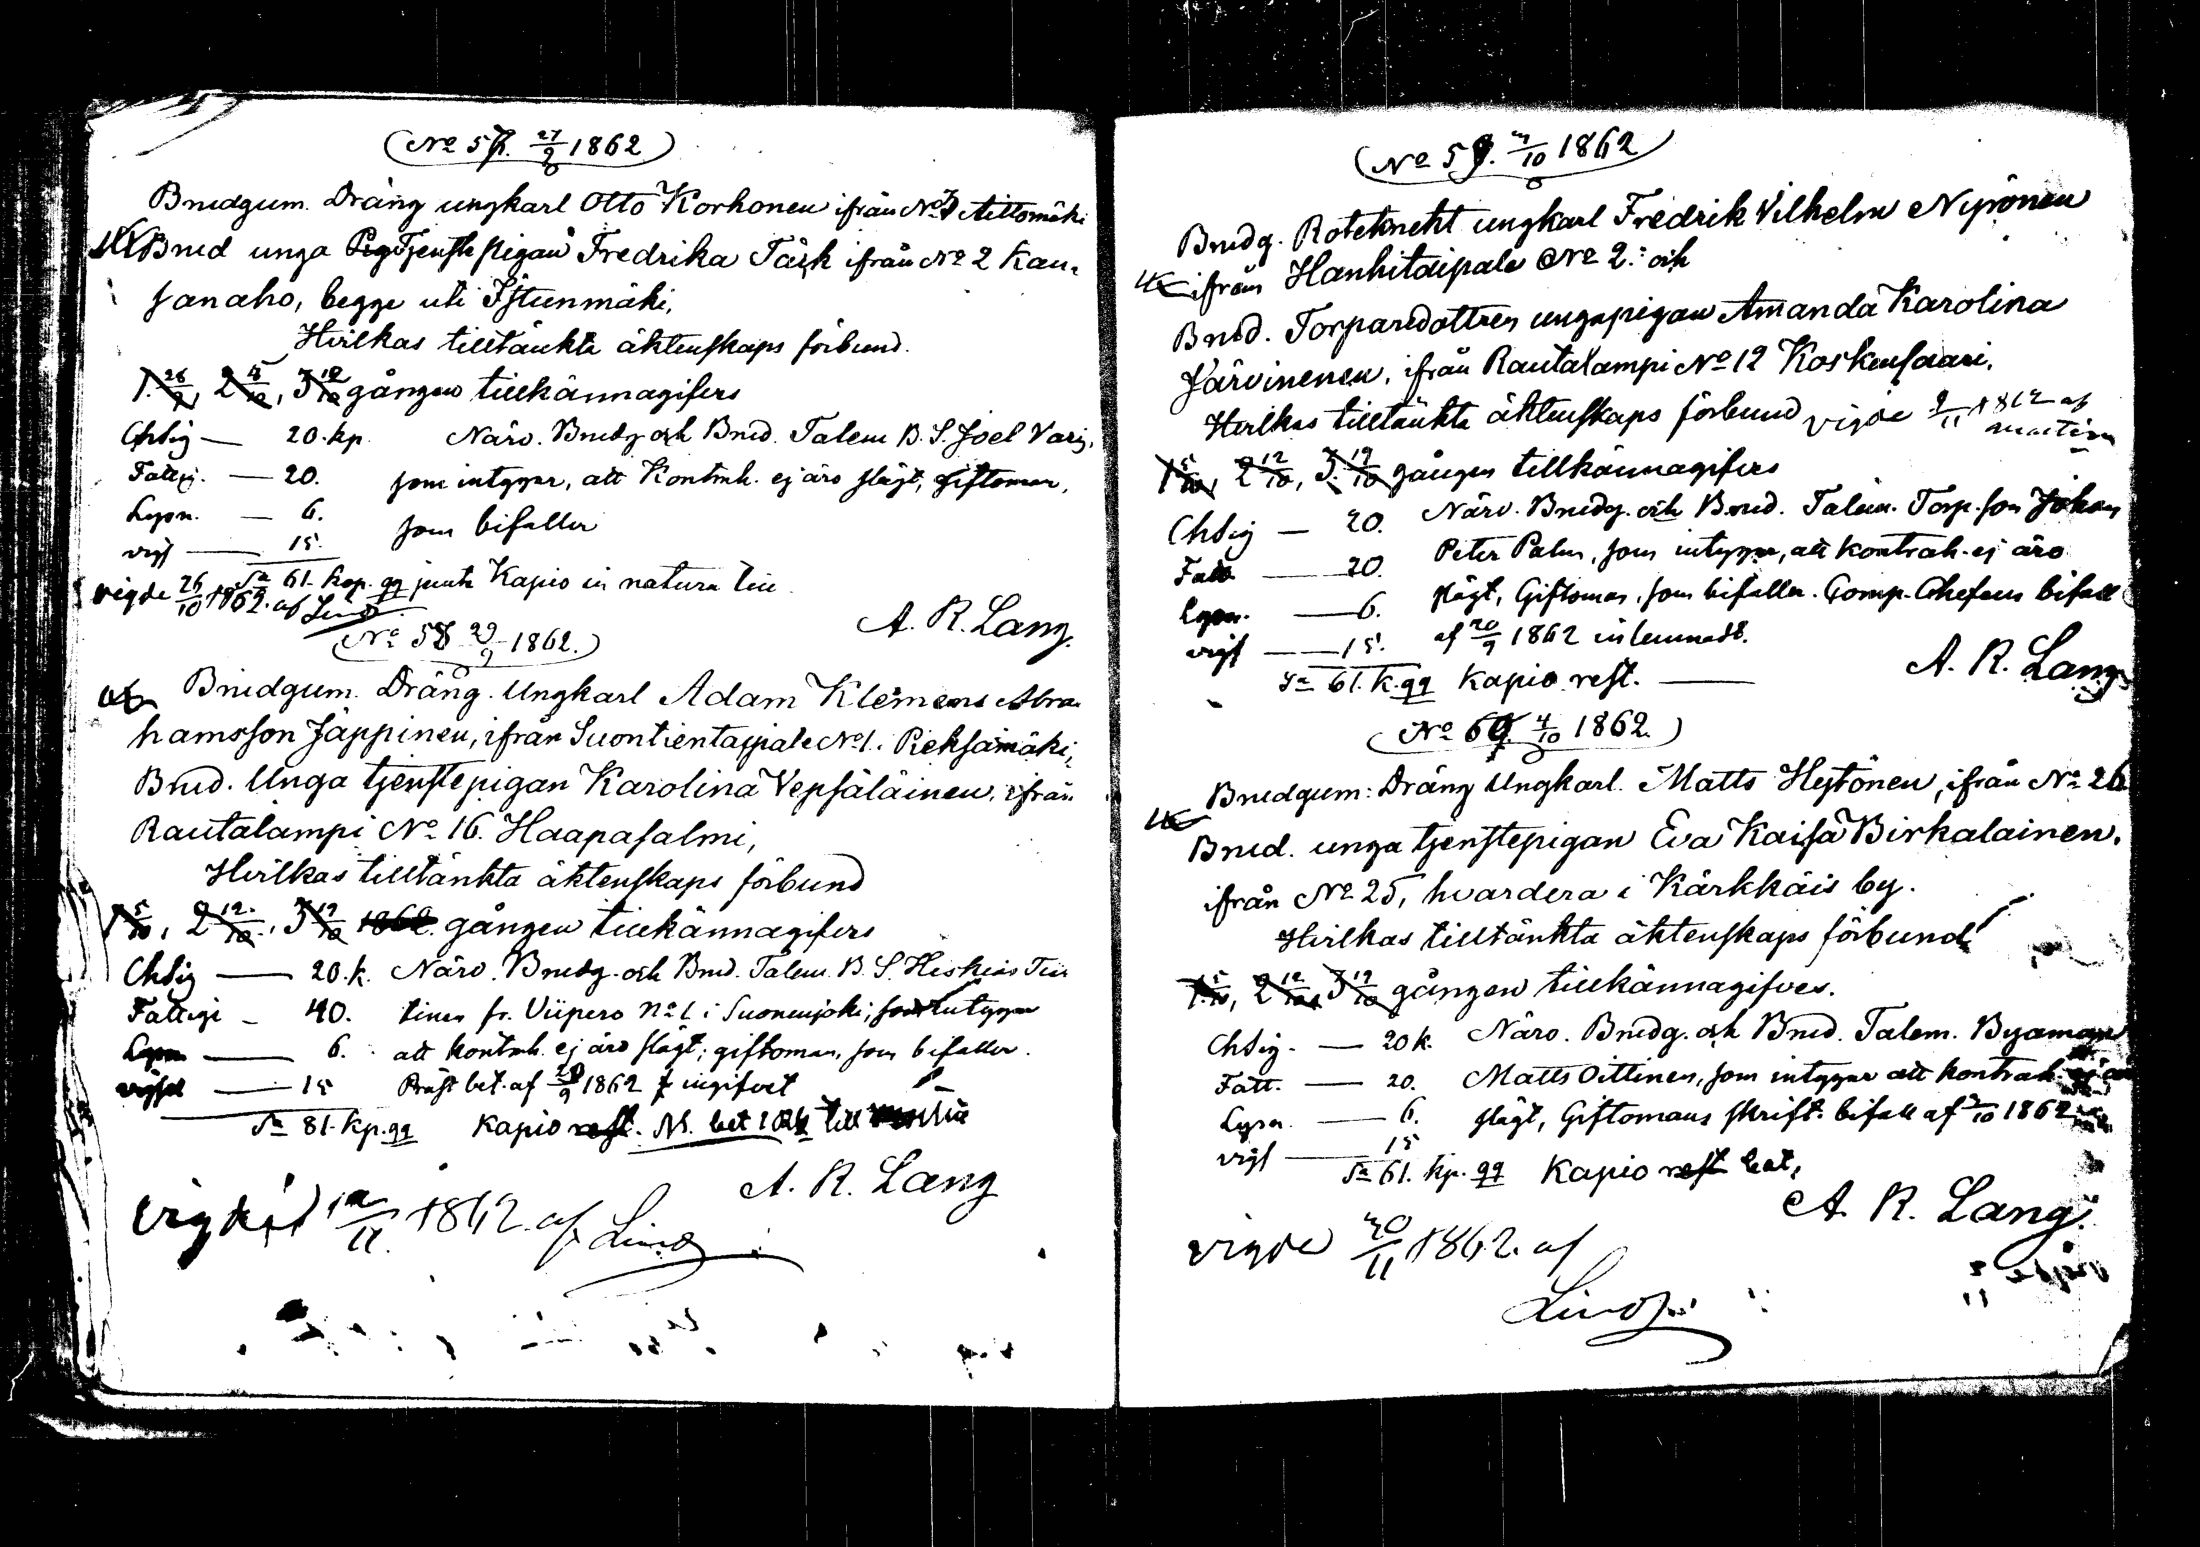 (No 57. 27/9 1862)
Brudgum. Dräng ungkarl Otto Korhonen ifrån No 7 Aittomäki
Brud unga Tjenstepigan Fredrika Tärk ifrån No 2 Kau-
sanaho, begge uti Istunmäki,
Hvilkas tilltänkta äktenskaps förbund.
1. 28/9, 2 5/10, 3 12/10 gången tillkännagifves
Chsig — 20. kp. Närv. Brudg. och Brud. Talem. B. S. Joel Varis,
Fattig. — 20. som intygar, att Kontrah. ej äro slägt, giftoman,
Lysn. — 6. som bifaller
vigs — 15.
Sa 61. kop. qq samt Kapio in natura till
vigde 26/10 1862. af Lind
A. R. Lang.
(No 58 29/9 1862.)
Brudgum. Dräng. Ungkarl Adam Klemens Abra-
hamsson Jäppinen, ifrån Suontientaipale No 1. Pieksämäki,
Brud. Unga tjenstepigan Karolina Vepsäläinen, ifrån
Rautalampi No 16. Haapasalmi,
Hvilkas tilltänkta äktenskaps förbund
1 5/10, 2 12/10, 3 19/10 1862. gången tillkännagifves
Chsig — 20. k. Närv. Brudg. och Brud. Talem. B. S. Heskias
Fattigi — 40. fr. Viipero No 1 i Suonenjoki, som intygar
Lysn — 6. att kontrah. ej äro slägt; giftoman, som bifaller.
vigsel — 15 Präst bet. af 29/9 1862 ingifvet
Sa 81. Kp. qq Kapio rest. bet till
A. R. Lang
1862. af Lind
(No 59. 3/10 1862)
Brudg. Roteknekt ungkarl Fredrik Vilhelm Nyrönen
ifrån Hankitaipale No 2: och
Brud. Torparedottren ungapigan Amanda Karolina
Järvinenen, ifrån Rautalampi No 12 Koskensaari.
Hvilkas tilltänkta äktenskaps förbund vigde 9/11 1862 af
1 5/10, 2 12/10, 3. 19/10 gången tillkännagifves
Chsig — 20. Närv. Brudg. och Brud. Talem. Torp. son Johan
Fatt — 20. Peter Palm, som intygar, att kontrah. ej äro
Lysn. — 6. slägt, Giftoman, som bifaller. Comp. Chefens bifall
vigs — 15. af 20/9 1862 inlemnadt.
Sa 61. k. qq Kapio rest. —
A. R. Lang
(No 60. 4/10 1862.)
Brudgum: Dräng Ungkarl. Matts Hytönen, ifrån No 26
Brud. unga tjenstepigan Eva Kaisa Birkalainen.
ifrån No 25, hvardera i Kärkkäis by.
Hvilkas tilltänkta äktenskaps förbund
1. 5/10, 2 12/10, 3 19/10 gången tillkännagifves.
Chsig. — 20 k. Närv. Brudg. och Brud. Talem. Byaman
Fatt. — 20. Matts Oittinen, som intygar att kontrah. ej äro
Lysn. — 6. slägt, Giftomans skrift. bifall af 3/10 1862
vigs — 15
Sa 61. kp. qq Kapio rest bet.
A. R. Lang.
vigde 30/11 1862. af
Lind